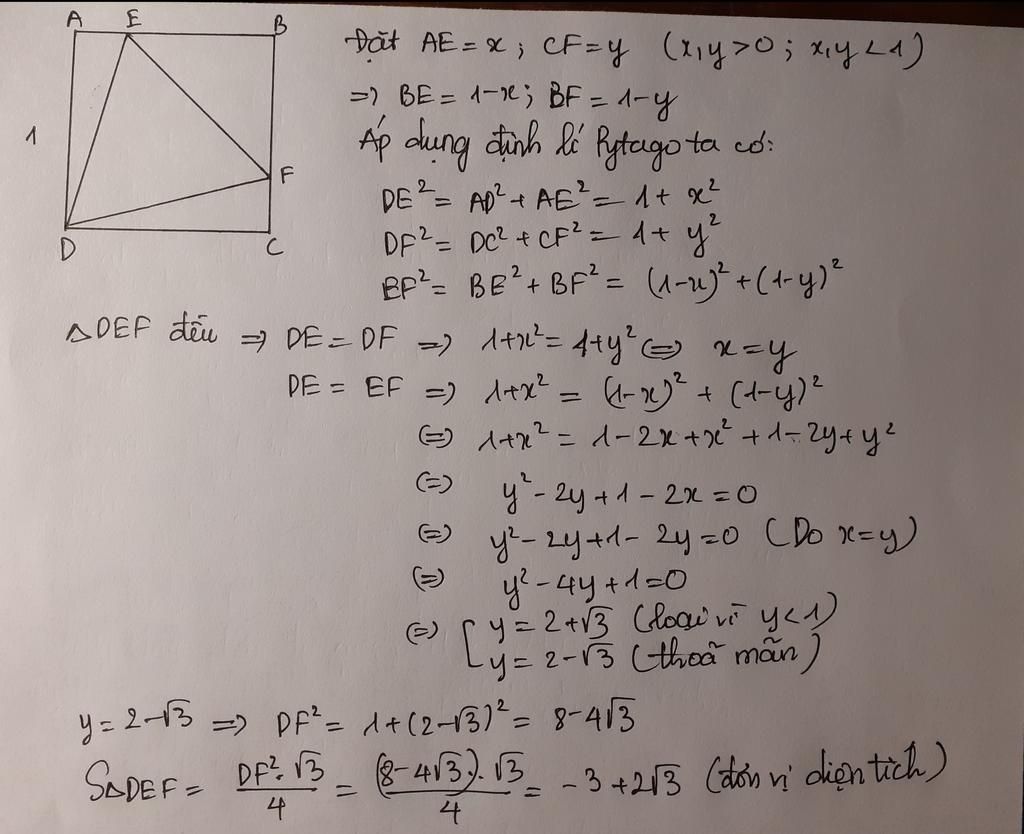 A E B
Đặt AE = x ; CF = y (x,y > 0 ; x,y < 1)
=> BE = 1-x ; BF = 1-y
1
Áp dụng định lí Pytago ta có:
F
DE² = AD² + AE² = 1 + x²
DF² = DC² + CF² = 1 + y²
D C
EF² = BE² + BF² = (1-x)² + (1-y)²
△DEF đều => DE = DF => 1+x² = 1+y² <=> x = y
DE = EF => 1+x² = (1-x)² + (1-y)²
<=> 1+x² = 1-2x+x² + 1-2y+y²
<=> y² - 2y + 1 - 2x = 0
<=> y² - 2y + 1 - 2y = 0 (Do x=y)
<=> y² - 4y + 1 = 0
<=> [ y = 2+√3 (loại vì y<1)
y = 2-√3 (thoã mãn)
y = 2-√3 => DF² = 1+(2-√3)² = 8-4√3
S△DEF = DF².√3/4 = (8-4√3).√3/4 = -3+2√3 (đơn vị diện tích)